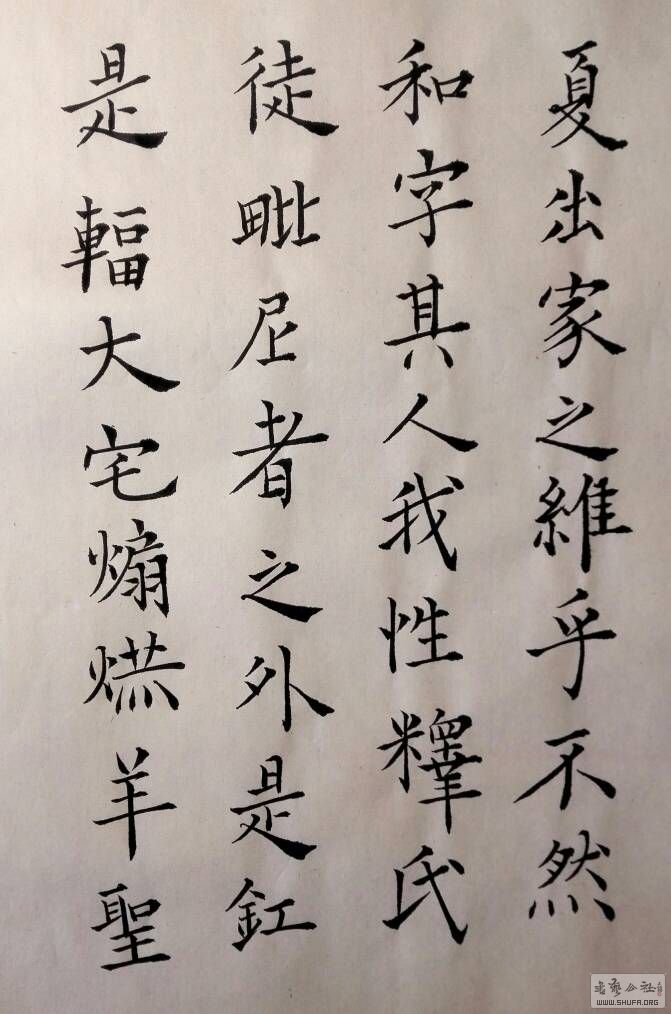 夏出家之維乎不然
和字其人我性釋氏
徒毗尼者之外是釭
是輻大宅煽爀羊聖
书艺公社
WWW.SHUFA.ORG